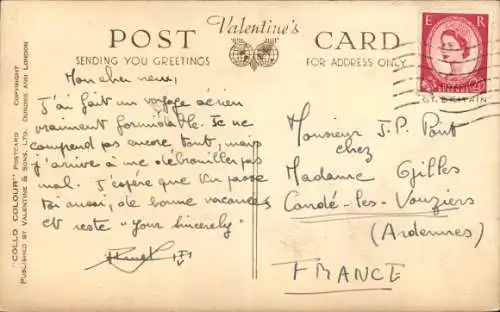 Valentine's
POST CARD
SENDING YOU GREETINGS
FOR ADDRESS ONLY
E R
GT BRITAIN
Mon cher neveu,
J'ai fait un voyage aérien
vraiment formidable. Je ne
comprend pas encore tout, mais
j'arrive à me débrouiller pas
mal. J'espère que tu passe
toi aussi, de bonne vacances
et reste "Your Sincerely"
Monsieur J.P. Pont
chez
Madame Gilles
Condé-les-Vouziers
(Ardennes)
FRANCE
"COLLO COLOUR" POSTCARD COPYRIGHT
PUBLISHED BY VALENTINE & SONS, LTD. DUNDEE AND LONDON